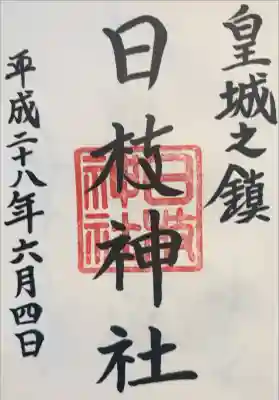 皇城之鎮
日枝神社
平成二十八年六月四日
日枝神社